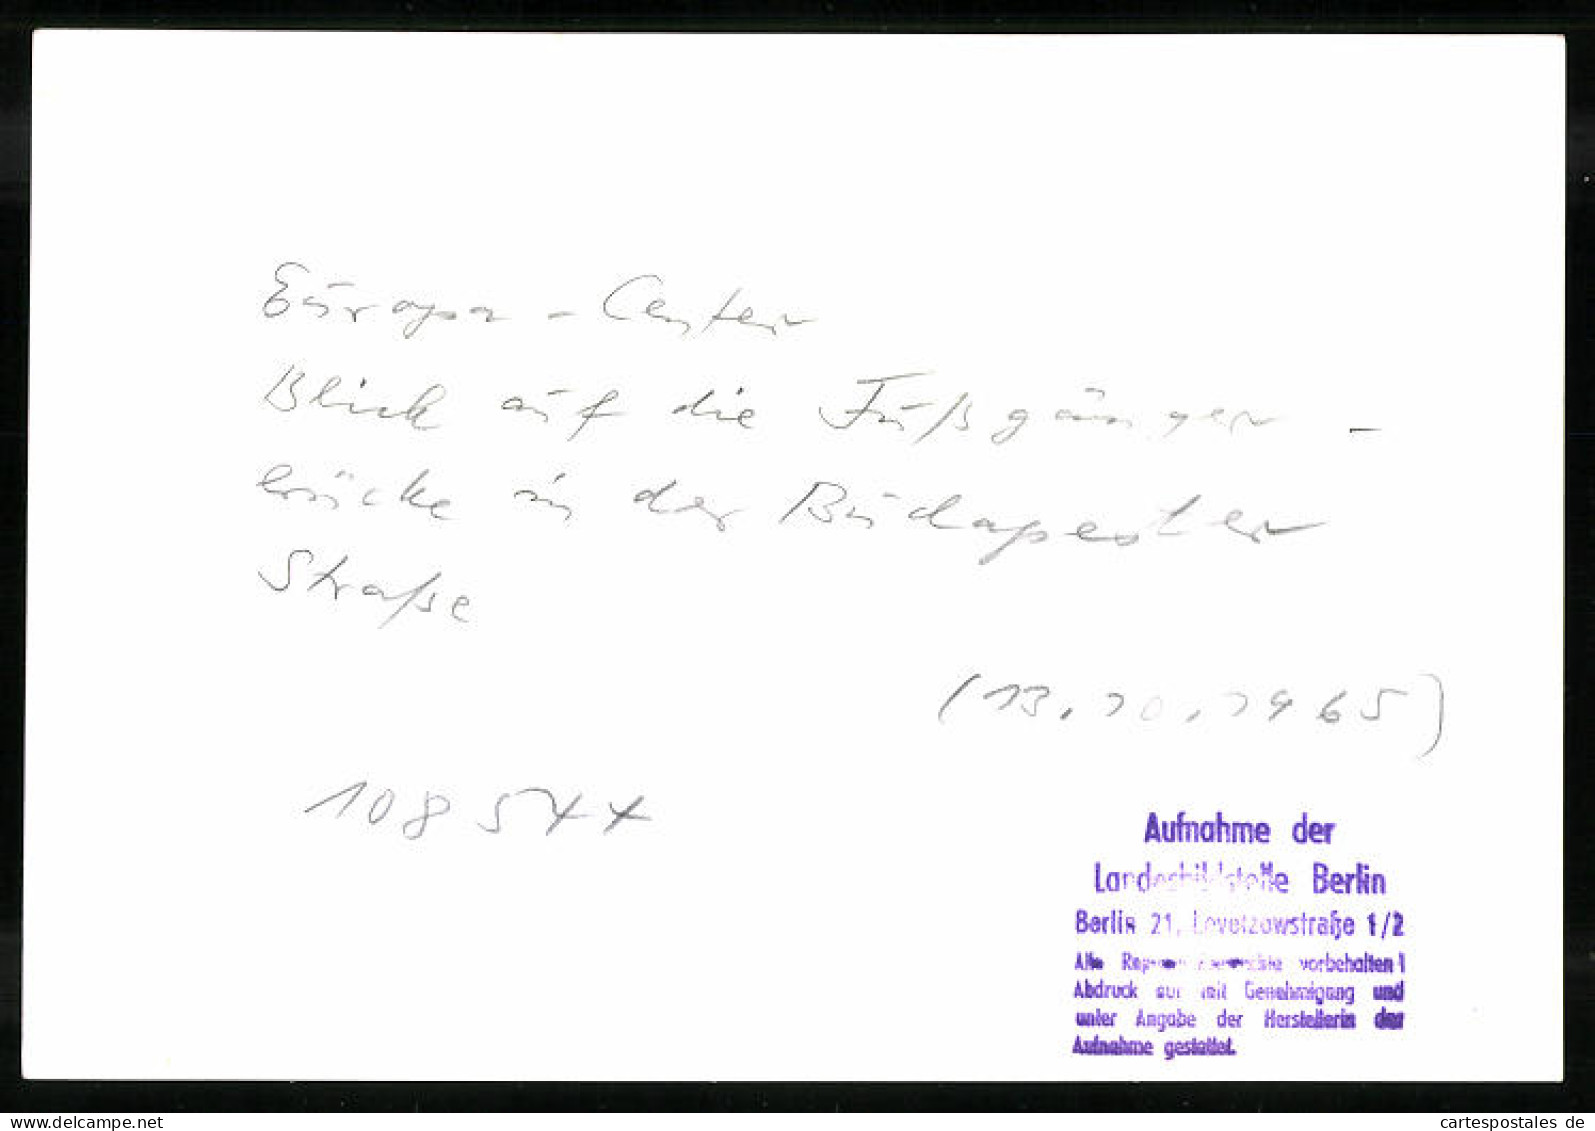 Europa - Center
Blick auf die Fußgänger -
brücke in der Budapester
Straße
(13.10.1965)
108544
Aufnahme der
Landesbildstelle Berlin
Berlin 21, Levetzowstraße 1/2
Alle vorbehalten!
Abdruck nur mit Genehmigung und
unter Angabe der Herstellerin der
Aufnahme gestattet.
www.delcampe.net
cartespostales de